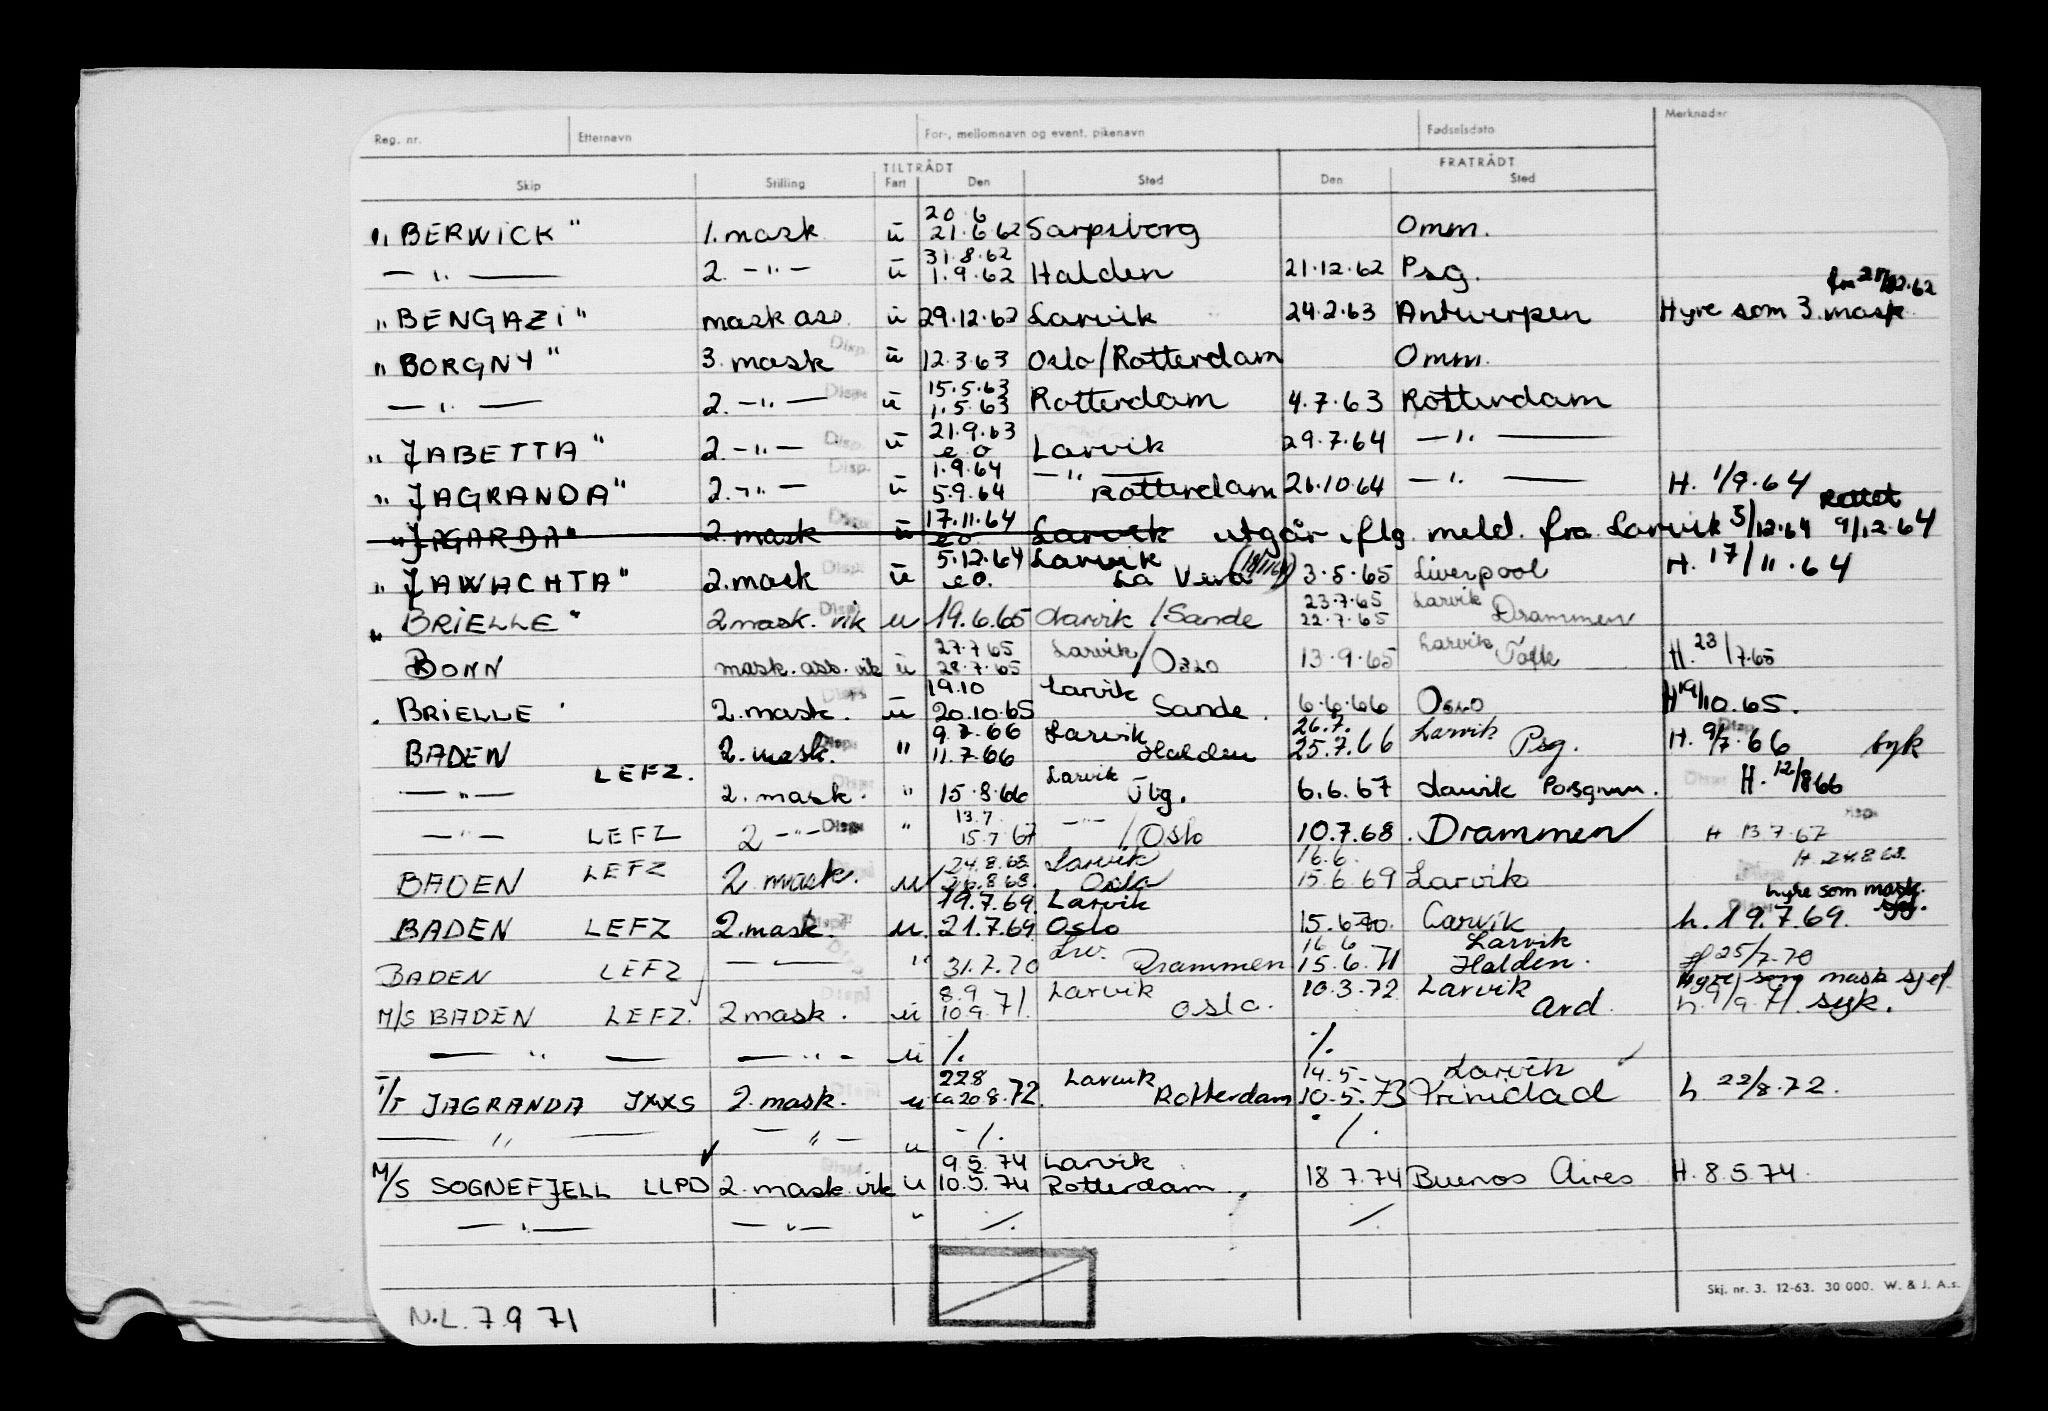 Reg. nr. Etternavn For-, mellomnavn og event. pikenavn Fødselsdato Merknader
TILTRÅDT FRATRÅDT
Skip Stilling Fart Den Sted Den Sted
20.6
"BERWICK" 1. mask ü 21.6.62 Sarpsborg Omm.
31.8.62
— " — 2. — " — ü 1.9.62 Halden 21.12.62 Psg.
"BENGAZI" mask ass. ü 29.12.62 Larvik 24.2.63 Antwerpen Hyre som 3. mask
"BORGNY" 3. mask Disp. ü 12.3.63 Oslo/Rotterdam Omm.
15.5.63
— " — 2. — " — Disp. ü 1.5.63 Rotterdam 4.7.63 Rotterdam
21.9.63
"JABETTA" 2. — " — Disp. ü e.o Larvik 29.7.64 — " —
1.9.64 — " —
"JAGRANDA" 2. — " — Disp. ü 5.9.64 Rotterdam 26.10.64 — " — H. 1/9.64
17.11.64 Rettet
"JAGARDA" 2. mask Disp. ü e.o Larvik utgår iflg. meld. fra Larvik 5/12.64 9/12.64
5.12.64 Larvik
"JAWACHTA" 2. mask Disp. ü e.o. La 3.5.65 Liverpool H. 17/11.64
23.7.65 Larvik
"BRIELLE" 2 mask. vik Disp. u 19.6.65 Larvik/Sande 22.7.65 Drammen
27.7.65 Larvik Larvik
BONN mask. ass. vik ü 28.7.65 /Oslo 13.9.65 Tofte H. 23/7.65
19.10 Larvik
BRIELLE 2. mask. Disp ü 20.10.65 Sande. 6.6.66 Oslo H 19/10.65.
9.7.66 Larvik 26.7. Larvik Disp.
BADEN 2. mask. Disp. " 11.7.66 Halden 25.7.66 Psg. H. 9/7.66 syk
LEFZ. Larvik
— " — 2. mask. Disp. " 15.8.66 Tbg. 6.6.67 Larvik Porsgrunn. Disp. H. 12/8 66
13.7 — " — Disp.
— " — LEFZ 2 — " — Disp. " 15.7 67 /Oslo 10.7.68. Drammen H 13.7.67
24.8.68. Larvik 16.6. H 24.8 68.
BADEN LEFZ 2 mask. u 26.8 68. Oslo 15.6 69 Larvik
19.7.69. Larvik hyre som mask.
BADEN LEFZ 2. mask. u. 21.7.69 Oslo 15.6 70. Larvik h. 19.7.69.
Lrv. 16 6 Larvik
BADEN LEFZ — " — " 31.7.70 Drammen 15.6.71 Halden. H 25/7-70
8.9 Larvik Hyre som mask sjef
M/S BADEN LEFZ. 2 mask. ü 10.9.71. Oslo. 10.3.72 Larvik Ard. h. 9/9.71. syk.
— " — — " — ü ./. ./.
228 Larvik 14.5- Larvik
T/T JAGRANDA JXXS 2. mask. u ca 20.8.72. Rotterdam 10.5.73 Trinidad h 22/8.72.
— " — — " — u ./. ./.
9.5.74 Larvik
M/S SOGNEFJELL LLPD 2. mask. vik u 10.5.74 Rotterdam. 18 7.74 Buenos Aires H. 8.5 74.
— " — — " — " ./. ./.
Skj. nr. 3. 12-63. 30 000. W. & J. A.s.
N.L. 7.9 71